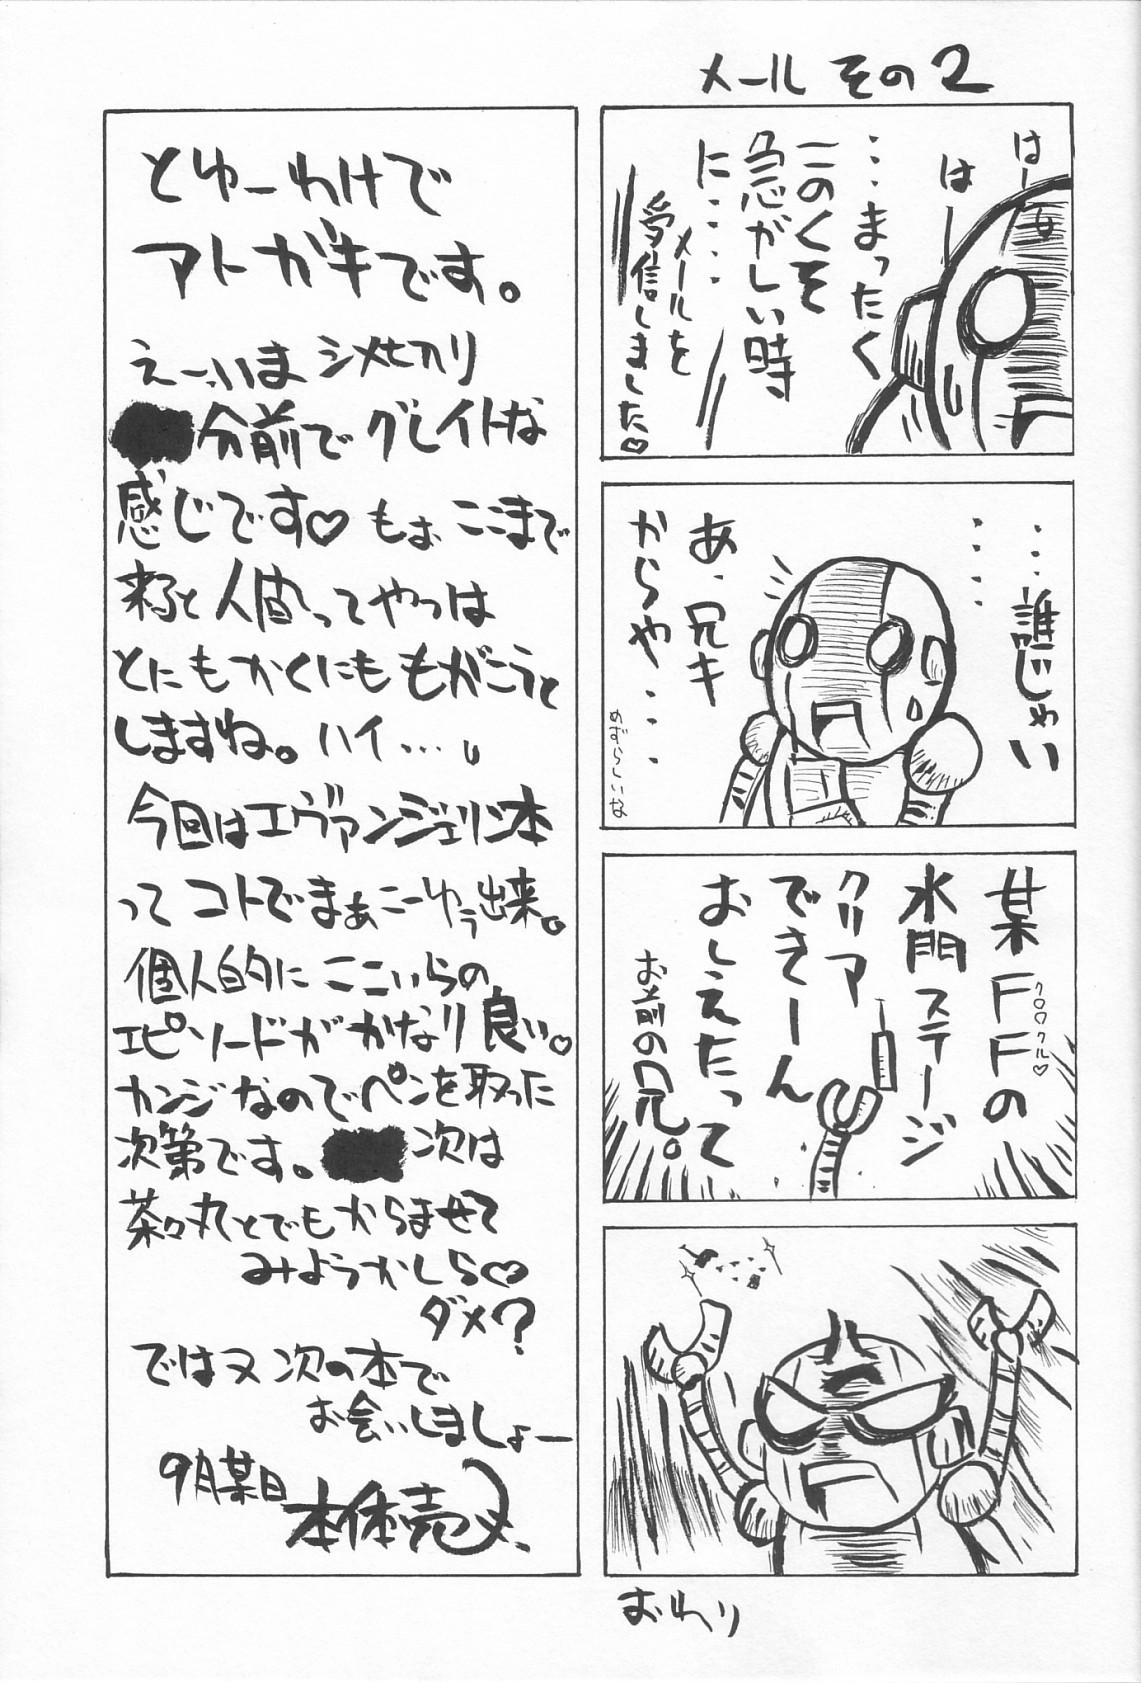 メール その2
はー
は
・・・まったく
このくそ
急がしい時
に・・・・
メールを
受信しました♡
・・・・
・・・誰じゃい
あ、兄キ
からや・・・
めずらしいな
某FFの
クロウ クル♡
水門ステージ
クリア
できーん
おしえたって
お前の兄。
おわり
とゆーわけで
アトガキです。
えー、いま シメ切り
分前で グレイトな
感じです♡ もぉ ここまで
来ると 人間ってやつは
とにもかくにも もがこうと
しますね。 ハイ…。
今回はエヴァンジェリン本
って コトでまぁこーゆう出来。
個人的に ここいらの
エピソードが かなり良い♡
カンジなのでペンを取った
次第です。 次は
茶々丸とでもからませて
みようかしら♡
ダメ?
ではヌ 次の本で
お会いしましょー
9月某日 本体売